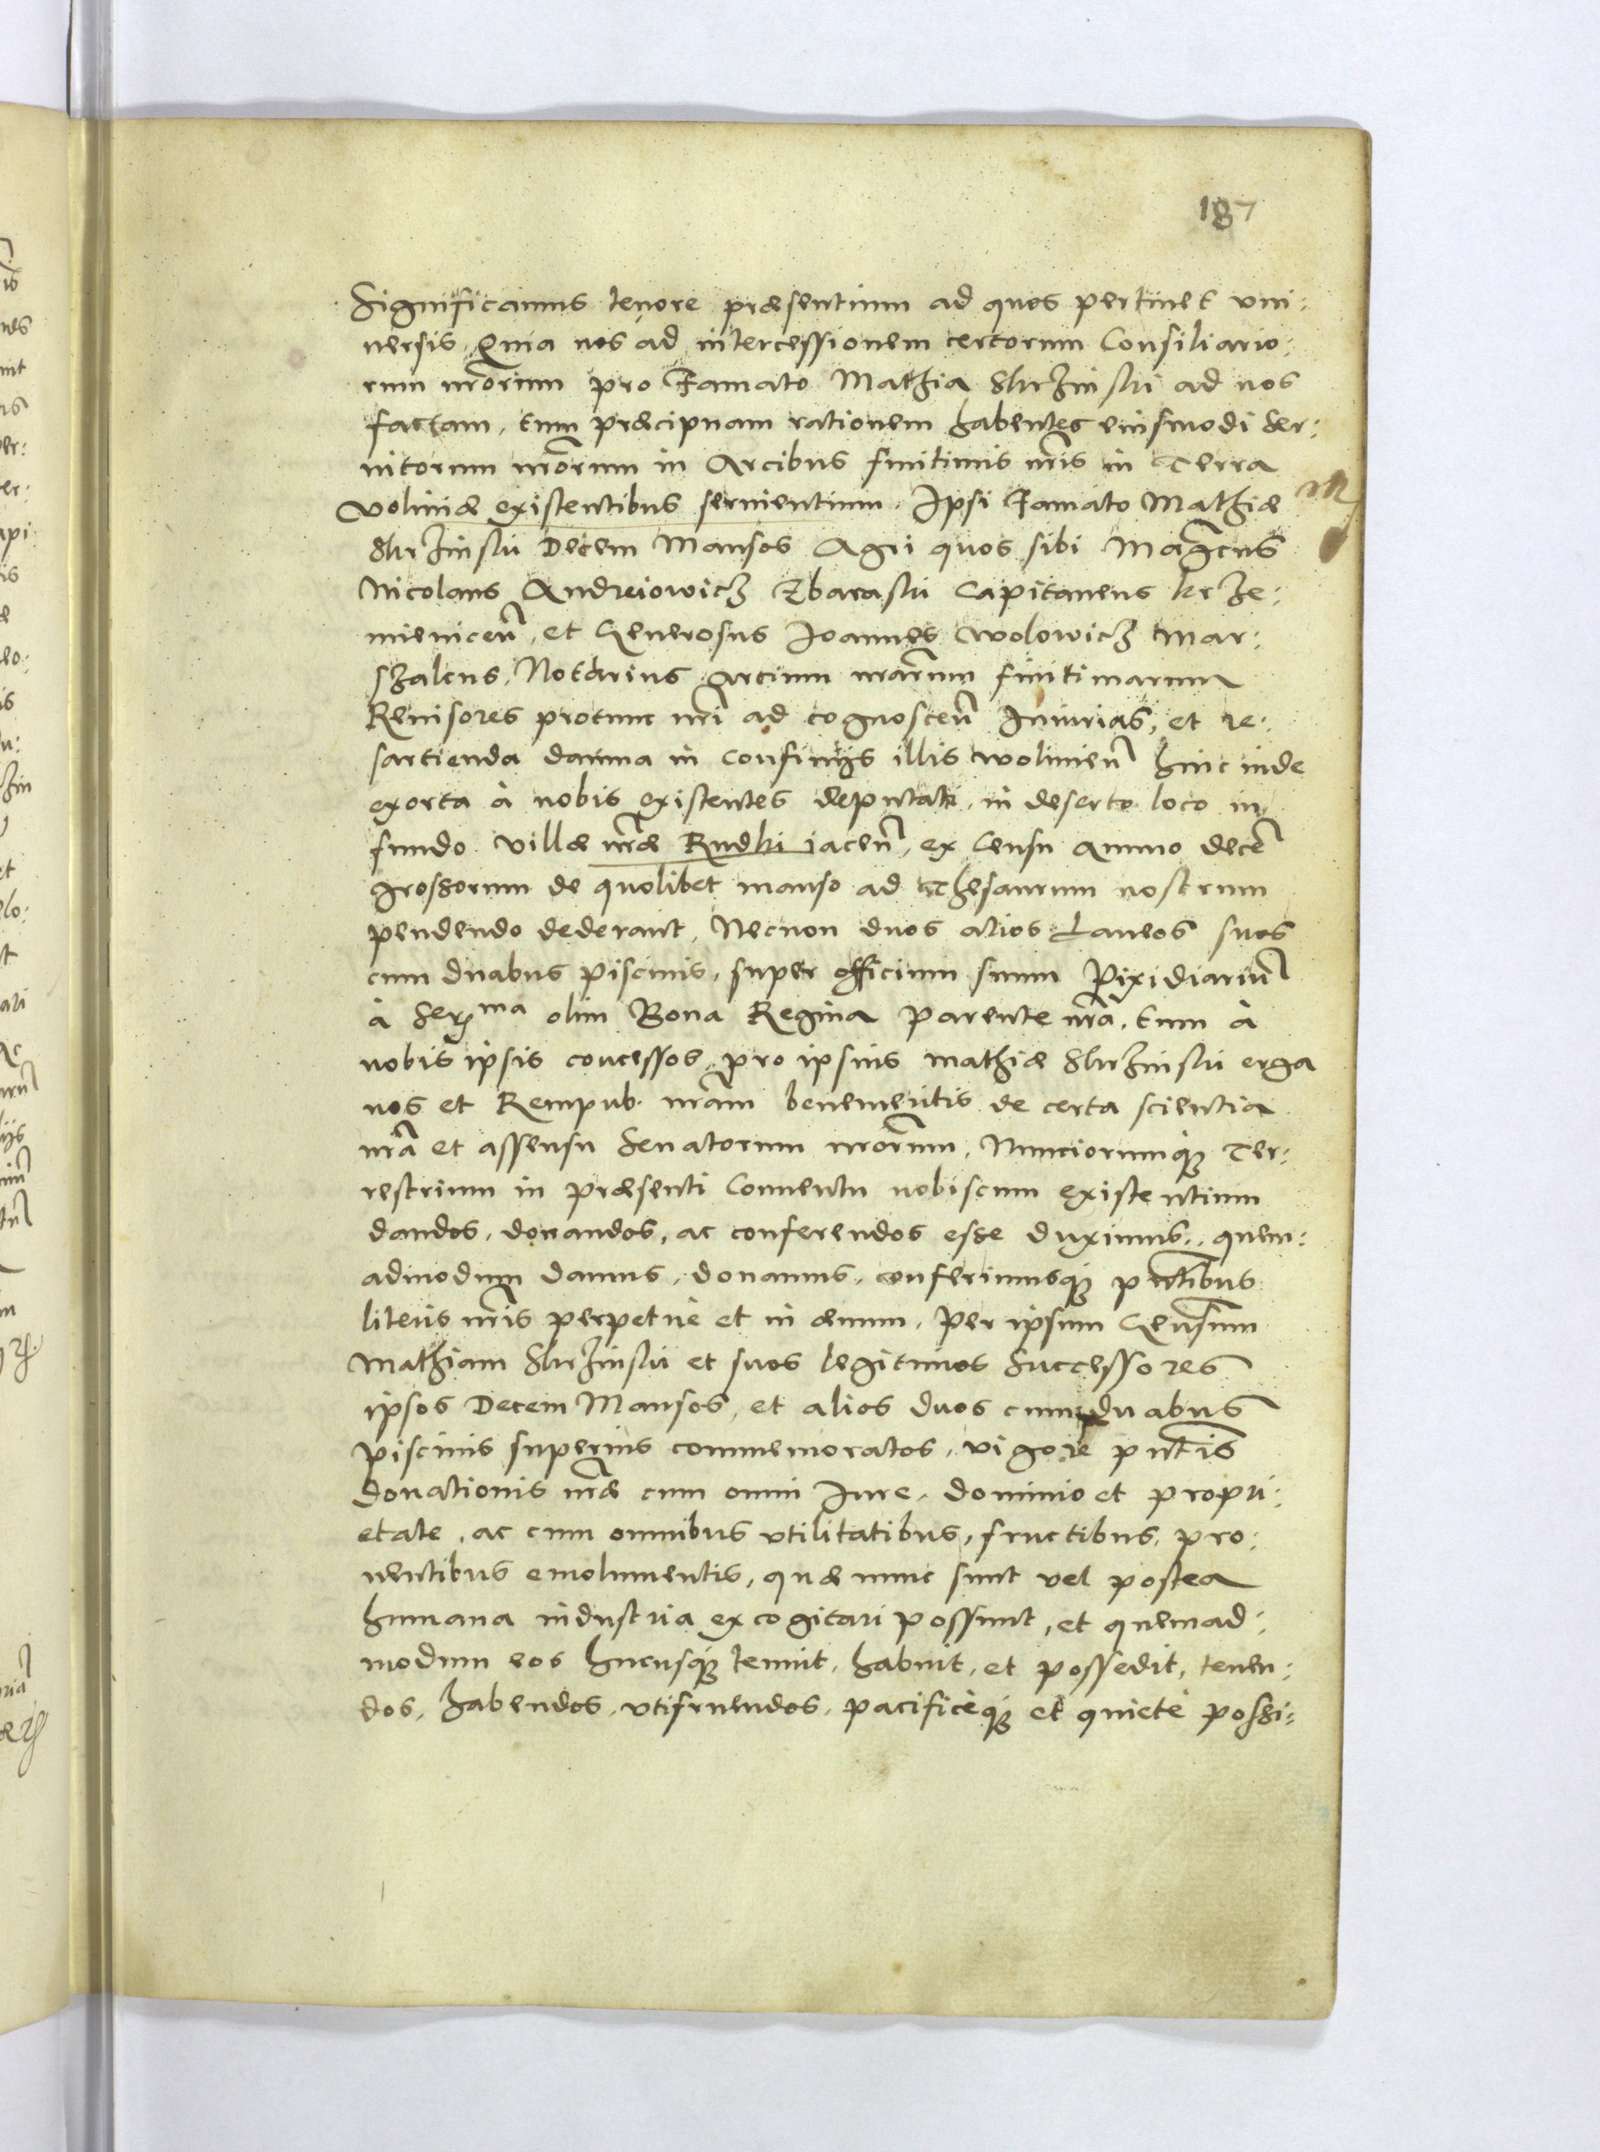 187
Significamus tenore præsentium ad quos pertinet vni:
uersis. Quia nos ad intercessionem certorum Consiliario:
rum nr̃orum pro Famato Mathia SkrZinski ad nos
factam, tum præcipuam rationem habentes eiusmodi ser:
uitorum nr̃orum in Arcibus finitimis nr̃is in Terra
Voliniæ existentibus seruientium. Ipsi Famato Mathiæ
SkrZinski Decem Mansos Agri quos sibi Mag̃cus
Nicolaus Andreiowicz Zbaraski Capitaneus krze:
mienicen̄, et Generosus Ioannes Wolowicz Mar:
szalcus, Notarius Arcium nr̃arum finitimarum
Reuisores protunc nr̃i ad cognoscen̄ Iniurias, et re:
sartienda damna in confinijs illis Wolinien̄ hinc inde
exorta à nobis existentes deputati, in deserto loco in
fundo Villæ nr̃æ Rudki iacen̄, ex Censu annuo decē
grossorum de quolibet manso ad Thesaurum nostrum
pendendo dederant, Necnon duos alios Laneos suos
cum duabus piscinis, super officium suum Pixidiariū
à Ser:ma olim Bona Regina Parente nr̃a, tum à
nobis ipsis concessos, pro ipsius Mathiæ SkrZinski erga
nos et Rempub. nr̃am benemeritis de certa scientia
nr̃a et assensu Senatorum nr̃orum, Nunciorumq̃ Ter:
restrium in præsenti Conuentu nobiscum existentium
dandos, donandos, ac conferendos esse duximus, quem:
admodum damus, donamus, conferimusq̃ pñtibus
literis nr̃is perpetuè et in æuum. Per ipsum Genosum
Mathiam SkrZinski et suos legitimos Successores
ipsos Decem Mansos, et alios duos cum duabus
piscinis superius commemoratos, vigore pñtis
donationis nr̃æ cum omni Iure, dominio et propri:
etate, ac cum omnibus vtilitatibus, fructibus, pro:
uentibus emolumentis, quæ nunc sunt vel postea
humana industria excogitari possunt, et quemad:
modum eos hucusq̃ tenuit, habuit, et possedit, tenen:
dos, habendos, vtifruendos, pacificèq̃ et quietè possi: